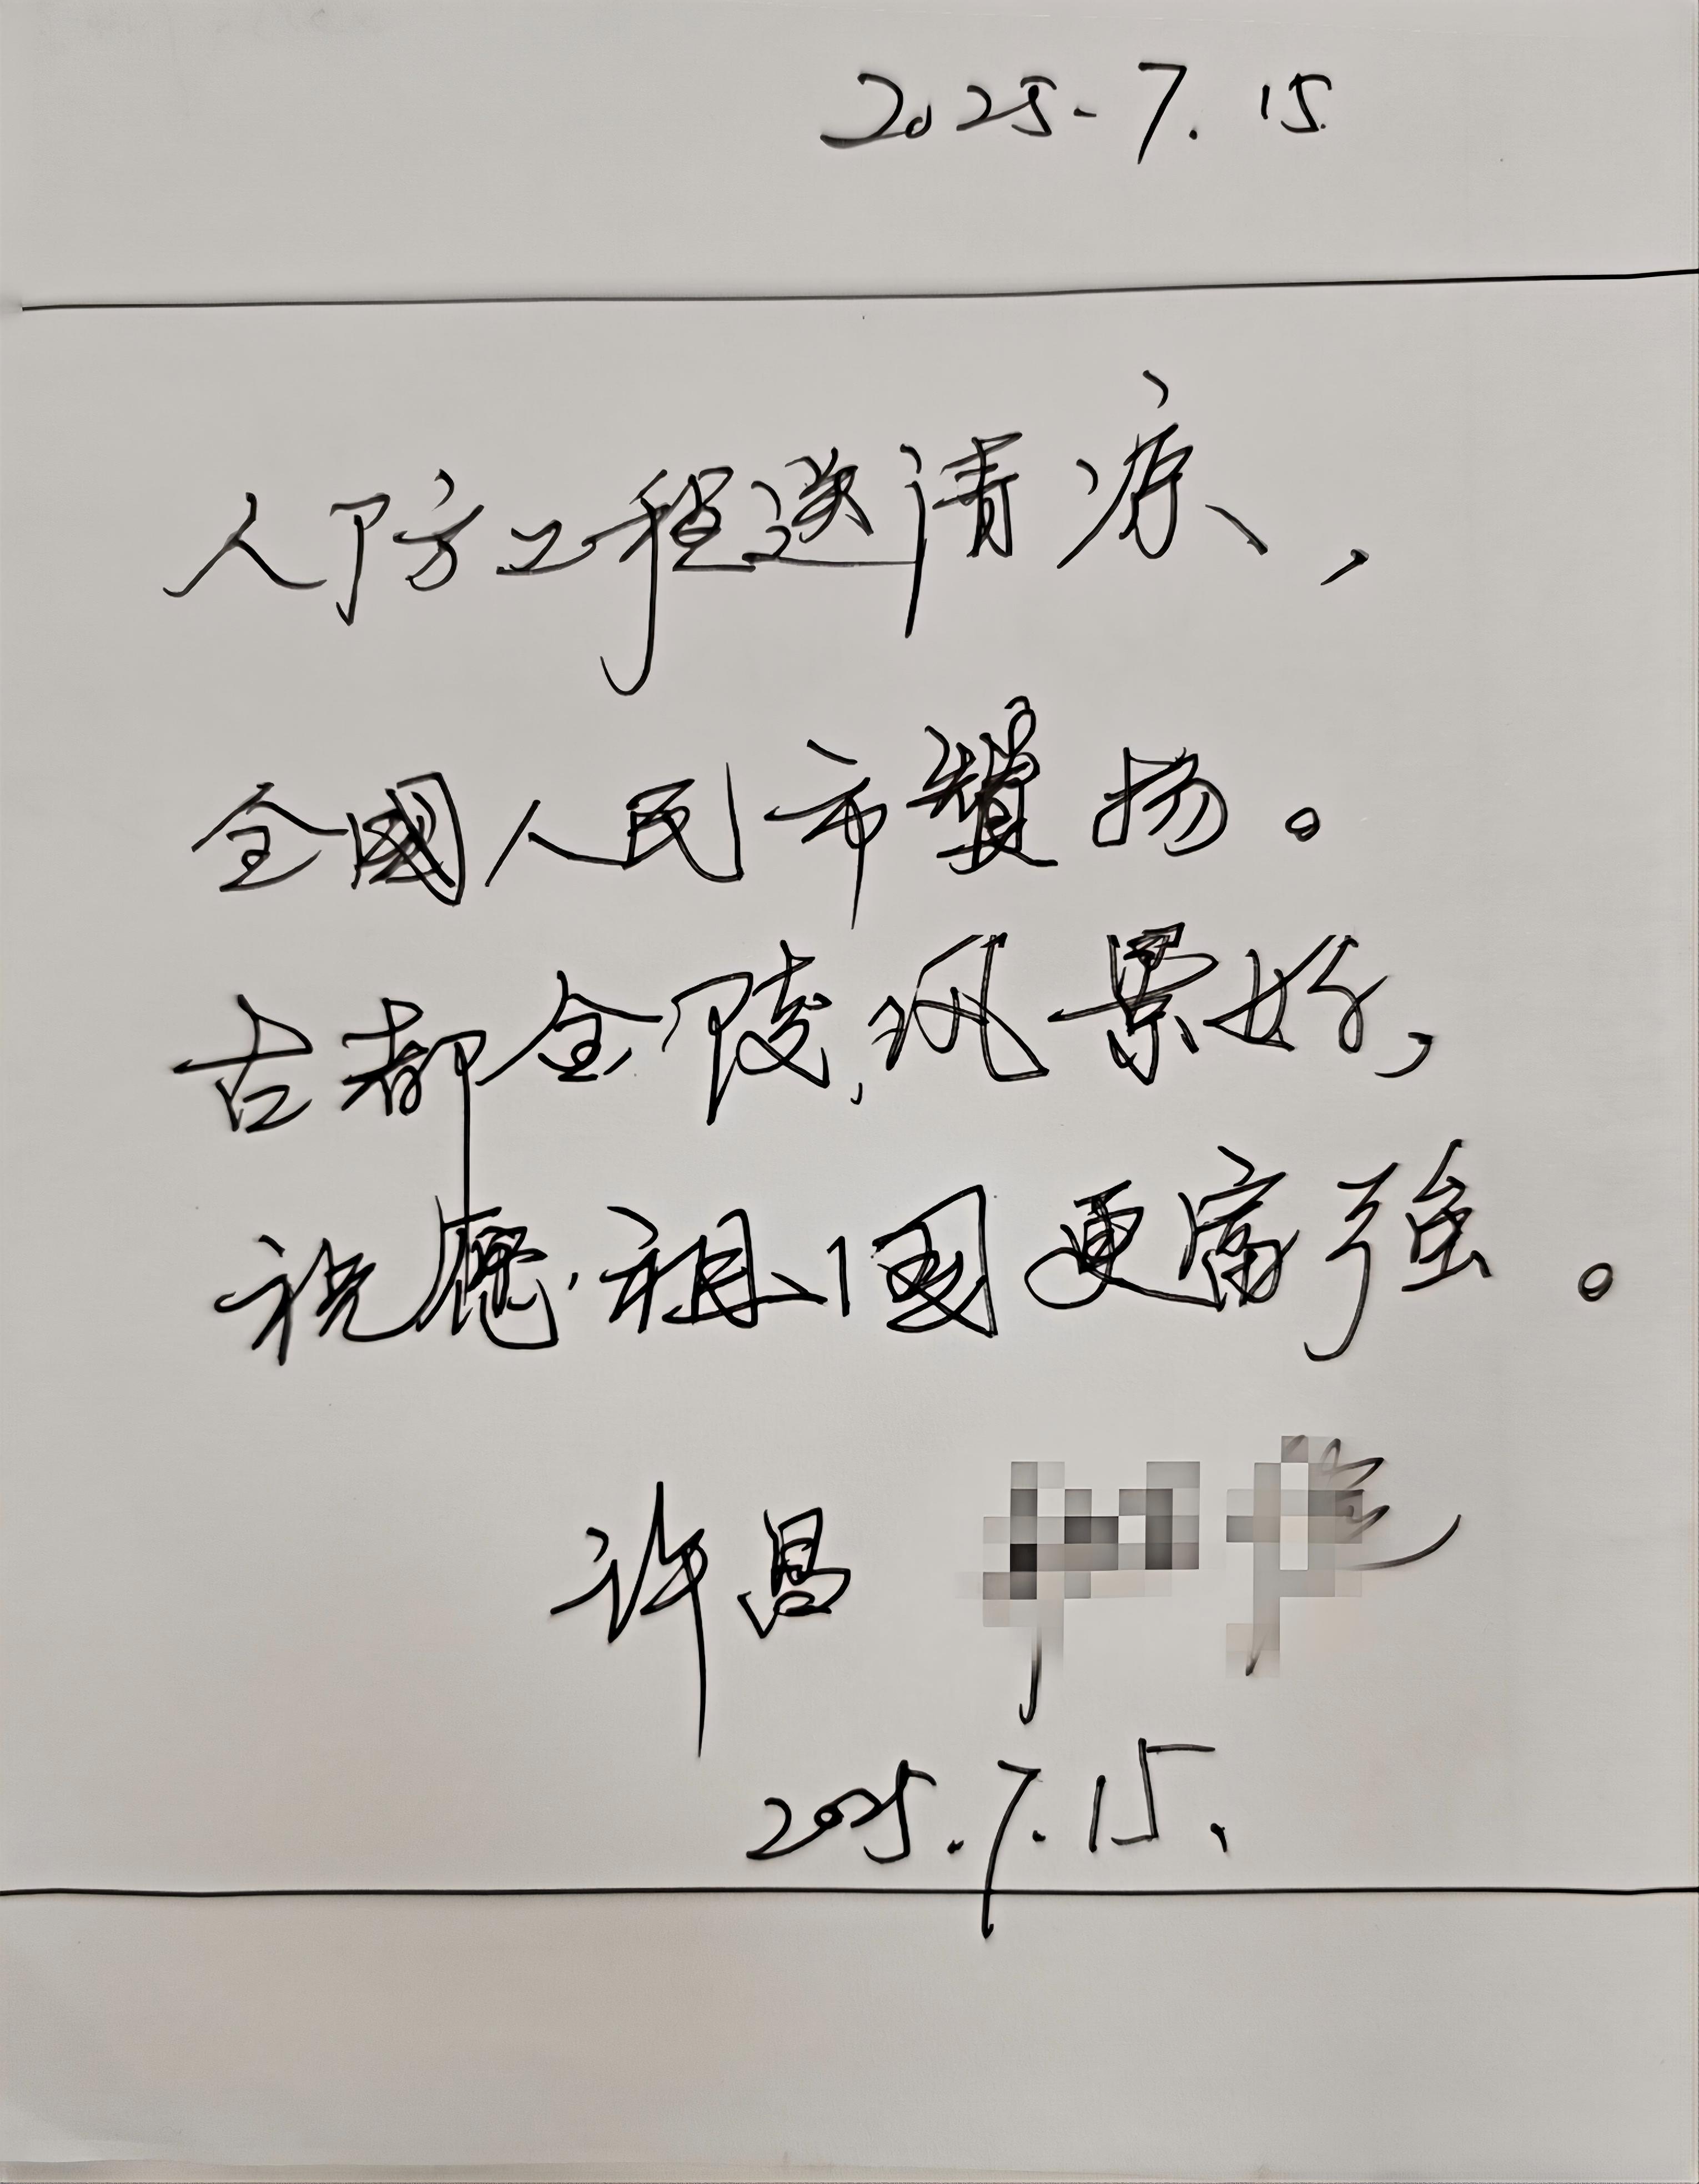 2025.7.15.
人防工程送清凉,
全國人民市贊扬。
古都金陵风景好,
祝愿祖國更富強。
许昌
2025.7.15.